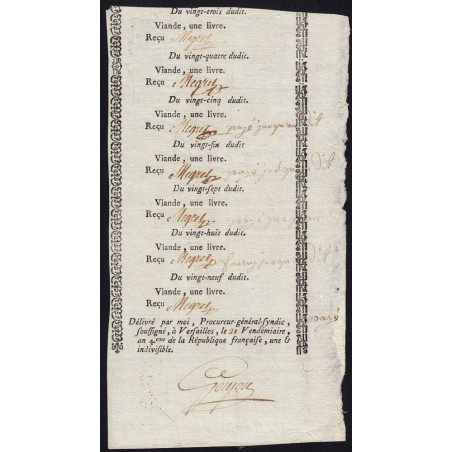 Du vingt-trois dudit.
Viande, une livre.
Reçu Megret
Du vingt-quatre dudit.
Viande, une livre.
Reçu Megret
Du vingt-cinq dudit.
Viande, une livre.
Reçu Megret
Du vingt-six dudit
Viande, une livre.
Reçu Megret
Du vingt-sept dudit.
Viande, une livre.
Reçu Megret
Du vingt-huit dudit.
Viande, une livre.
Reçu Megret
Du vingt-neuf dudit.
Viande, une livre.
Reçu Megret
Délivré par moi, Procureur-général-syndic,
soussigné, à Versailles, le 21 Vendémiaire,
an 4.eme de la République française, une &
indivisible.